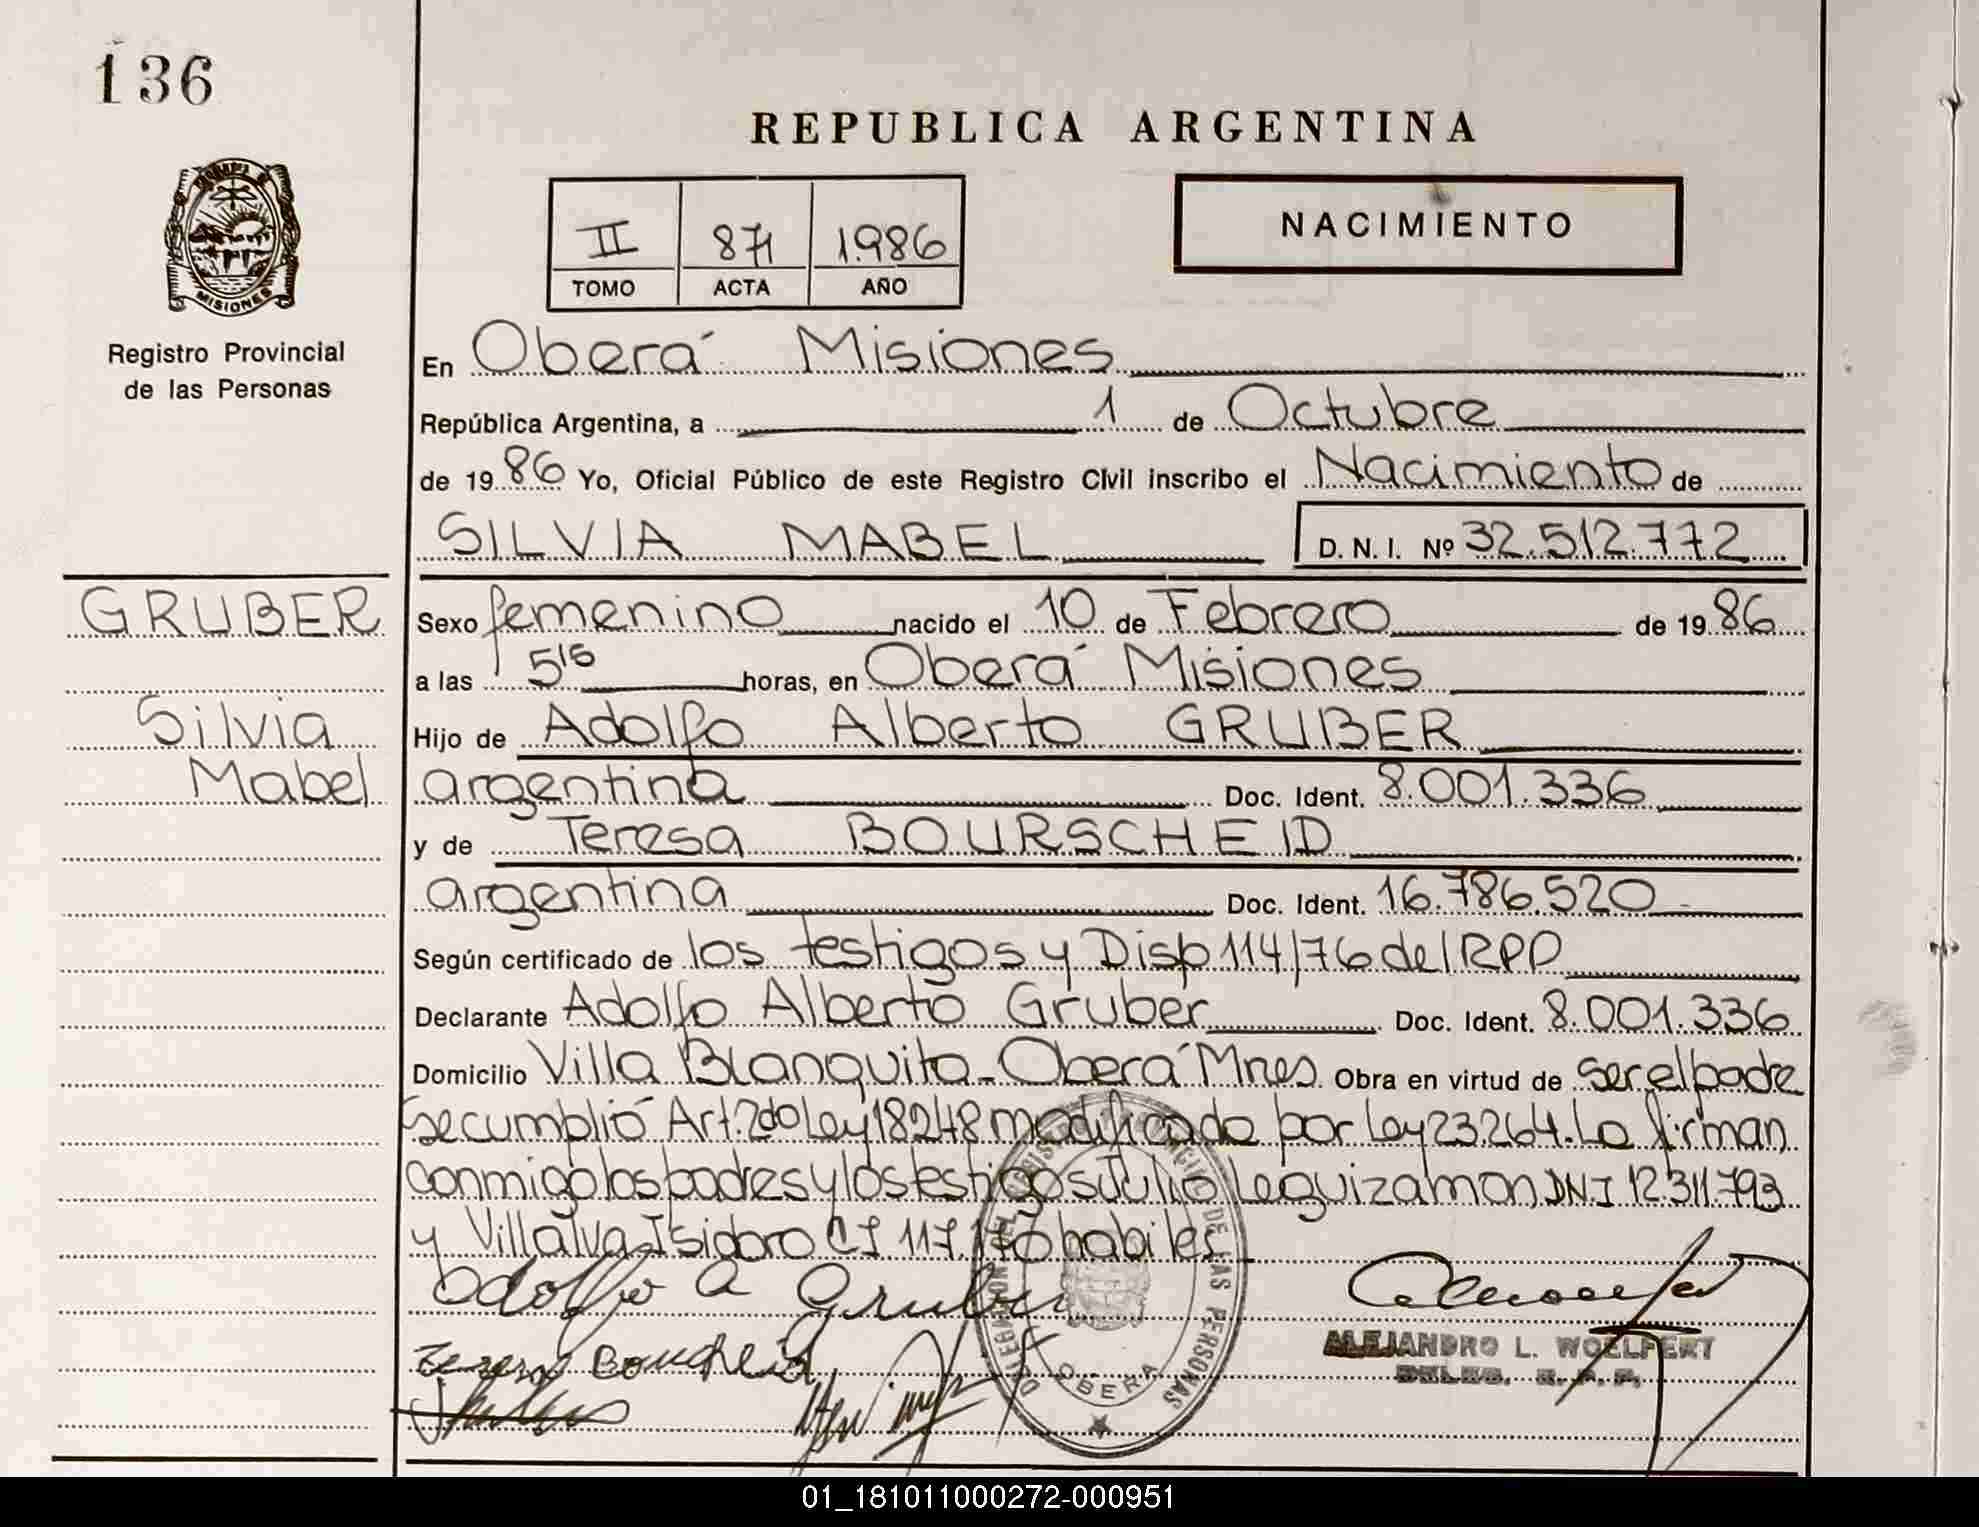 136
REPUBLICA ARGENTINA
MISIONES
Registro Provincial
de las Personas
II 871 1.986
TOMO ACTA AÑO
NACIMIENTO
En Oberá Misiones
República Argentina, a 1 de Octubre
de 1986 Yo, Oficial Público de este Registro Civil inscribo el Nacimiento de
SILVIA MABEL D. N. I. Nº 32.512.772
GRUBER
Silvia
Mabel
Sexo femenino nacido el 10 de Febrero de 1986
a las 5 15 horas, en Oberá Misiones
Hijo de Adolfo Alberto GRUBER
argentina Doc. Ident. 8.001.336
y de Teresa BOURSCHEID
argentina Doc. Ident. 16.786.520
Según certificado de los testigos y Disp 114/76 del RPP
Declarante Adolfo Alberto Gruber Doc. Ident. 8.001.336
Domicilio Villa Blanquita - Oberá Mnes Obra en virtud de ser el padre
se cumplió Art. 2do Ley 18248 modificado por Ley 23.264. La firman
conmigo los padres y los testigos Julio Leguizamon, DNI 12.311.793
y Villalva Isidoro CI 117. habiles
Adolfo A Gruber
ALEJANDRO L. WOELFERT
DELEG. R. P. P.
DE LAS PERSONAS
OBERA
01_181011000272-000951